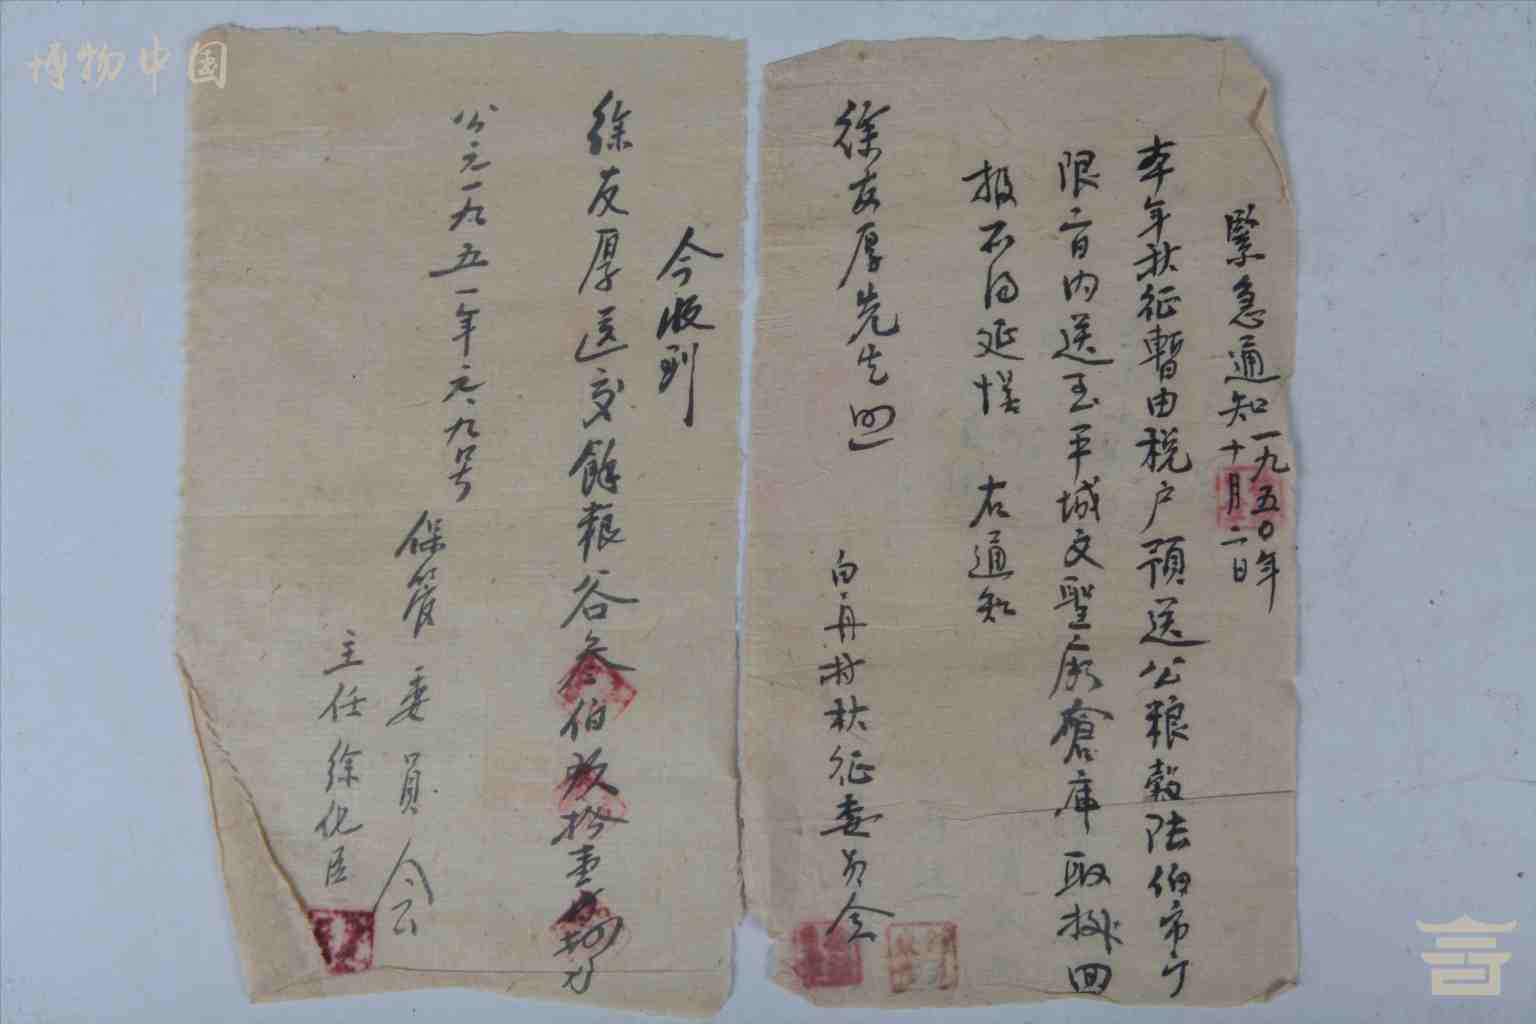 博物中国
緊急通知 一九五〇年
十月二日
本年秋征暫由税户預送公粮穀陆伯市斤
限二日内送玉平城文聖廟倉庫取据回
报不得延悮 右通知
徐友厚先生
白舟村秋征委员会
今收到
徐友厚送交餘粮谷叁伯玖拾壹斤
公元一九五一年元.九号
保管委員会
主任徐化臣